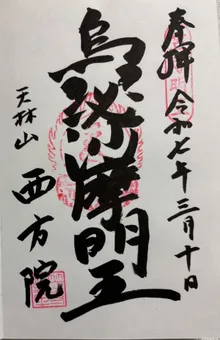 奉拝 令和七年三月十日
烏枢沙摩明王
天林山 西方院